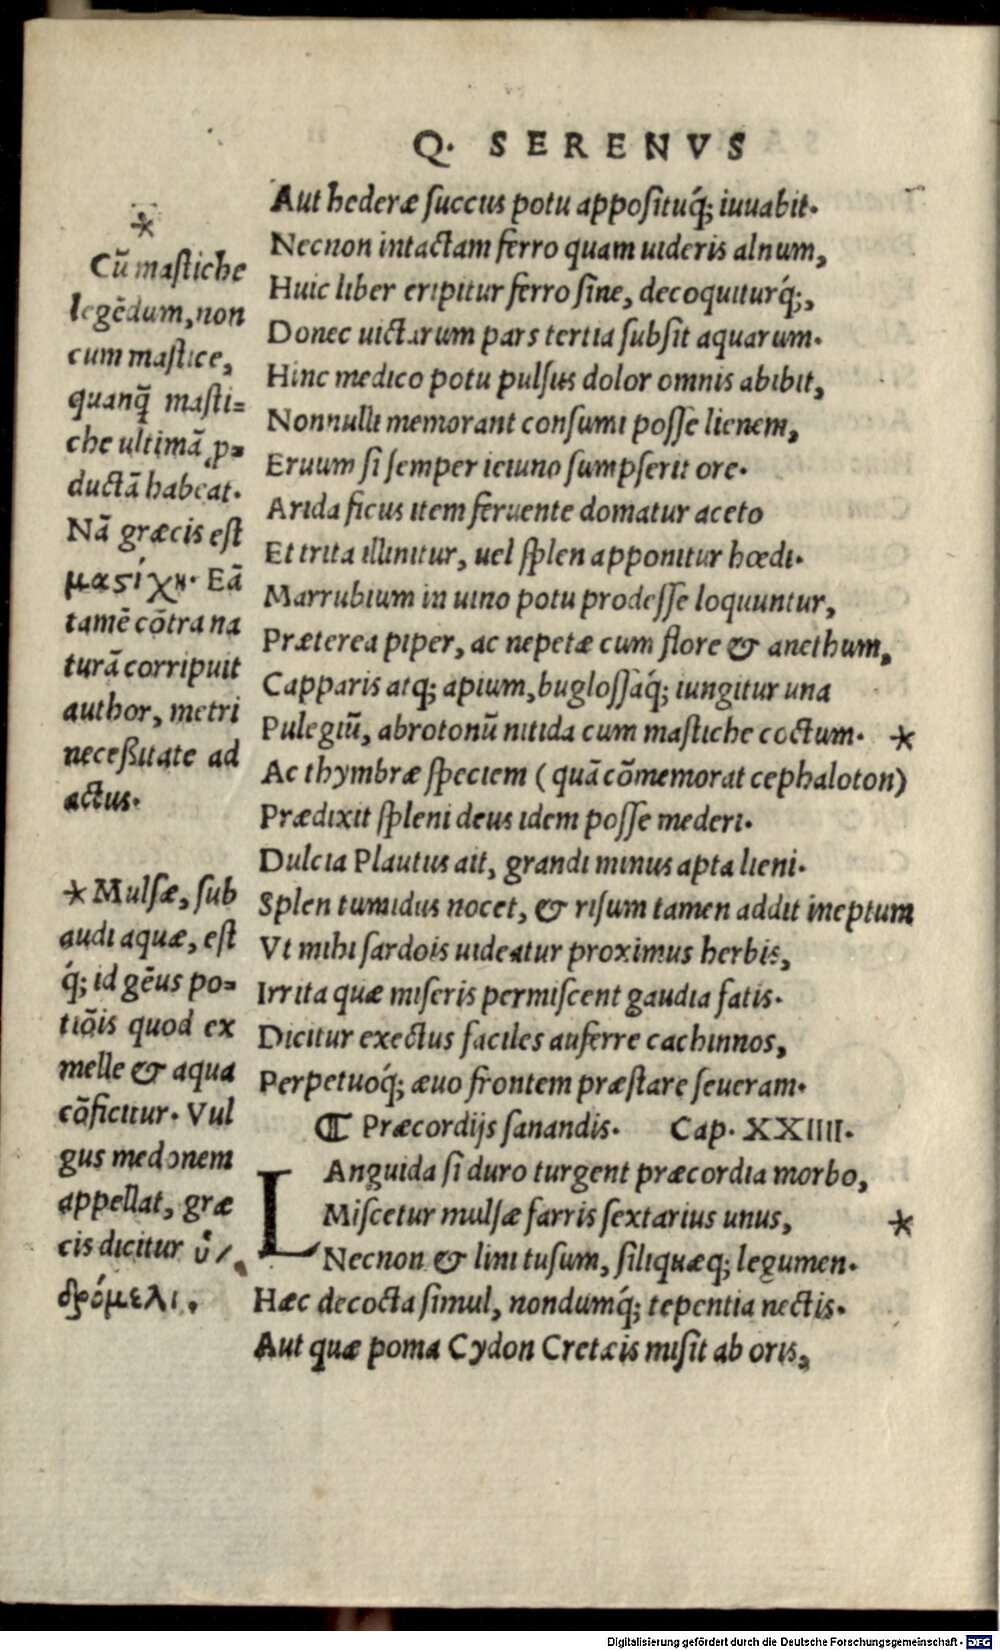 Q. SERENVS
Aut hederæ ſuccus potu appoſituq́; iuuabit.
Necnon intactam ferro quam uideris alnum,
Huic liber eripitur ferro ſine, decoquiturq́;,
Donec uictarum pars tertia ſubſit aquarum.
Hinc medico potu pulſus dolor omnis abibit,
Nonnulli memorant conſumi poſſe lienem,
Eruum ſi ſemper ieiuno ſumpſerit ore.
Arida ficus item feruente domatur aceto
Et trita illinitur, uel ſplen apponitur hœdi.
Marrubium in uino potu prodeſſe loquuntur,
Præterea piper, ac nepetæ cum flore & anethum,
Capparis atq; apium, bugloſſaq́; iungitur una
Pulegiũ, abrotonũ nitida cum maſtiche coctum. *
Ac thymbræ ſpeciem (quã cõmemorat cephaloton)
Prædixit ſpleni deus idem poſſe mederi.
Dulcia Plautus ait, grandi minus apta lieni.
Splen tumidus nocet, & riſum tamen addit ineptum
Vt mihi ſardois uideatur proximus herbis,
Irrita quæ miſeris permiſcent gaudia fatis.
Dicitur exectus faciles auferre cachinnos,
Perpetuoq́; æuo frontem præſtare ſeueram.
¶ Præcordijs ſanandis. Cap. XXIIII.
LAnguida ſi duro turgent præcordia morbo,
Miſcetur mulſæ farris ſextarius unus, *
Necnon & lini tuſum, ſiliquæq; legumen.
Hæc decocta ſimul, nondumq́; tepentia nectis.
Aut quæ poma Cydon Cretæis miſit ab oris,
*
Cũ maſtiche
legẽdum, non
cum maſtice,
quanq̃ maſti=
che ultimã ꝓ=
ductã habeat.
Nã græcis eſt
μαϛίχη. Eã
tamẽ cõtra na
turã corripuit
author, metri
neceßitate ad
actus.
* Mulſæ, ſub
audi aquæ, eſt
q́; id gẽus po=
tiõis quod ex
melle & aqua
cõficitur. Vul
gus medonem
appellat, græ
cis dicitur ὑ/
δρόμελι.
Digitalisierung gefördert durch die Deutsche Forschungsgemeinschaft - DFG